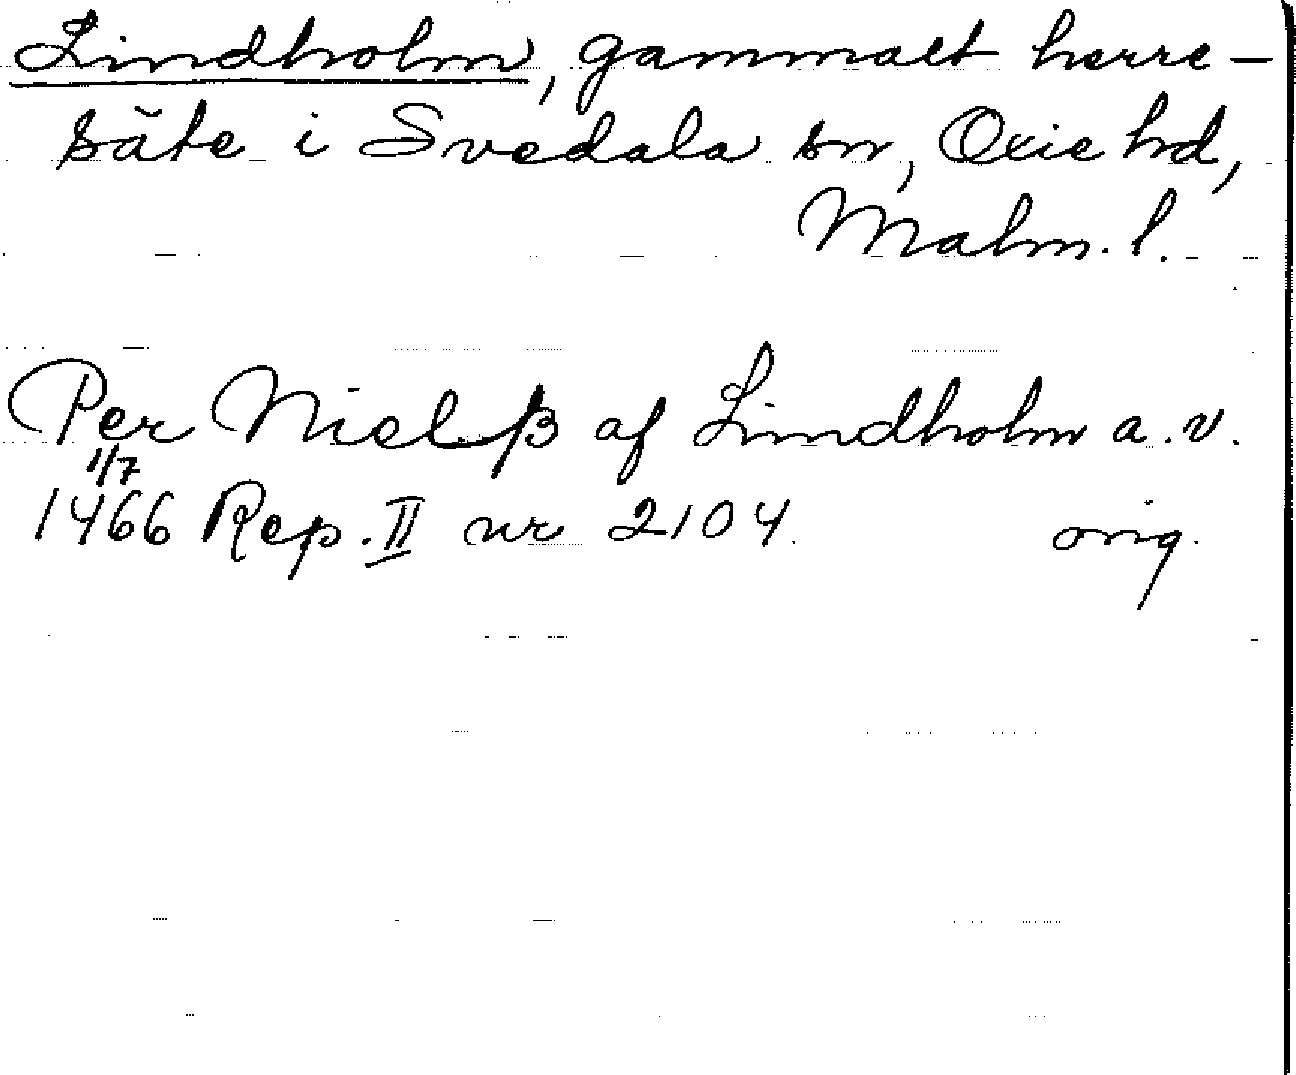 Lindholm, gammalt herre-
säte i Svedala sn, Oxie hd,
Malm. l.
Per Nielß af Lindholm a.v.
1/7
1466 Rep. II nr 2104. orig.